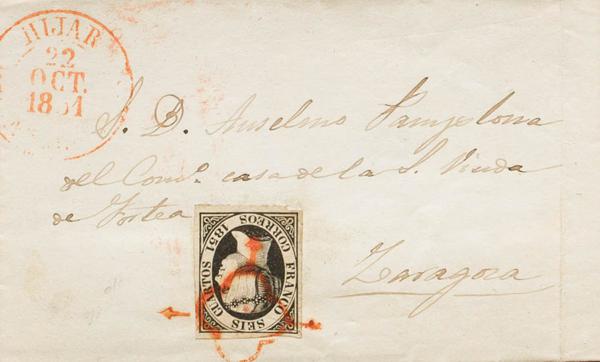 HIJAR
22
OCT.
1851
S. D. Anselmo Pamplona
del Com.º casa de la S. Viuda
de Fortea
Zaragoza
CORREOS 1851
FRANCO SEIS CUARTOS